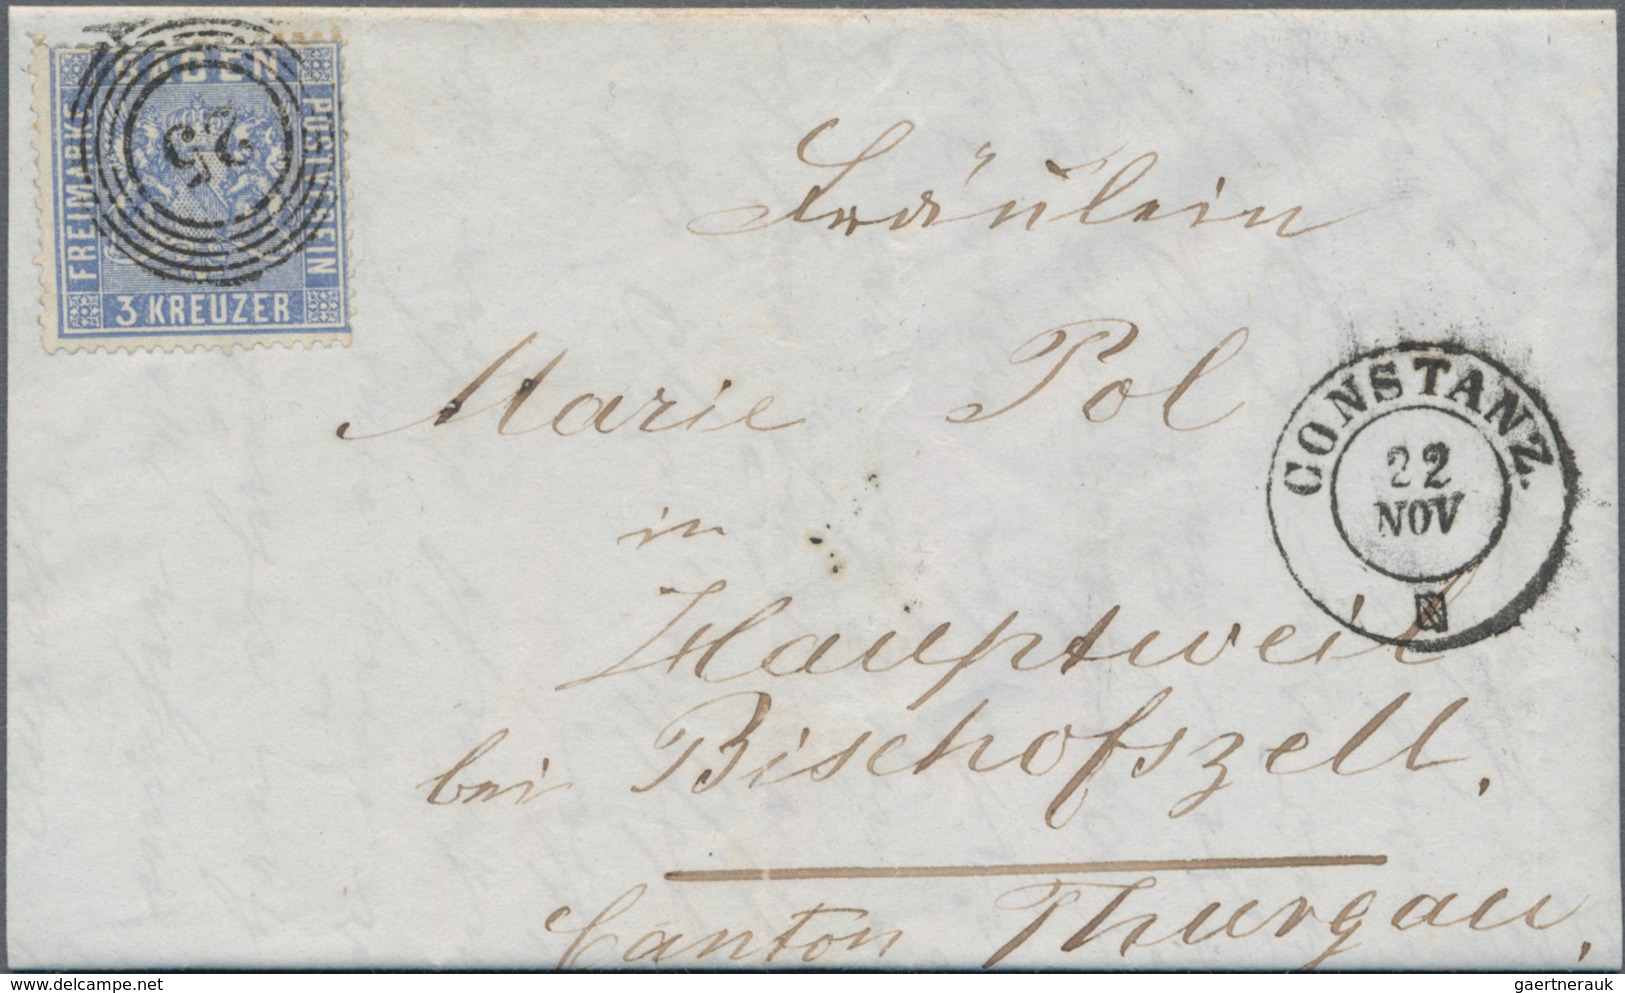 BADEN
FREIMARKE
POSTVEREIN
3 KREUZER
25
Fräulein
Marie Pol
in
Hauptweil
bei Bischofszell.
Canton Thurgau.
CONSTANZ.
22
NOV
delcampe.net
gaertnerauk